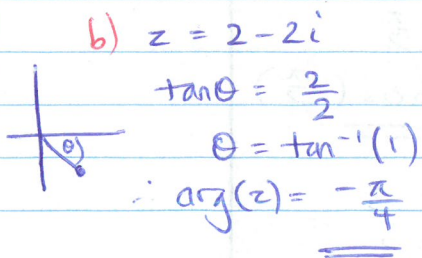 b) z = 2 - 2i
tanθ = 2/2
θ
θ = tan⁻¹(1)
∴ arg(z) = -π/4